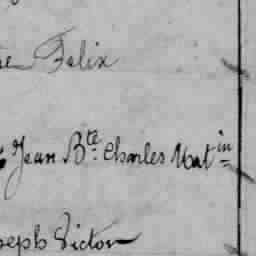 Felix
Jean Bte. Charles Mat in
seph Victor